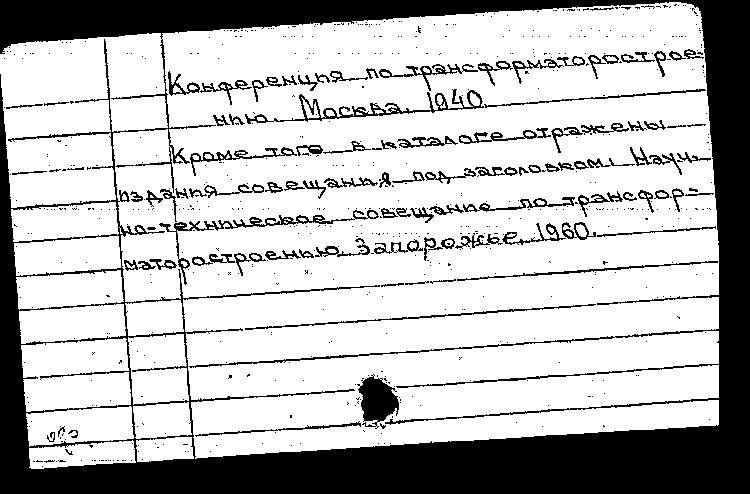 Конференция по трансформаторострое-
нию. Москва. 1940
Кроме того в каталоге отражены
издания совещания под заголовком: Науч-
но-техническое совещание по трансфор-
маторостроению. Запорожье. 1960.